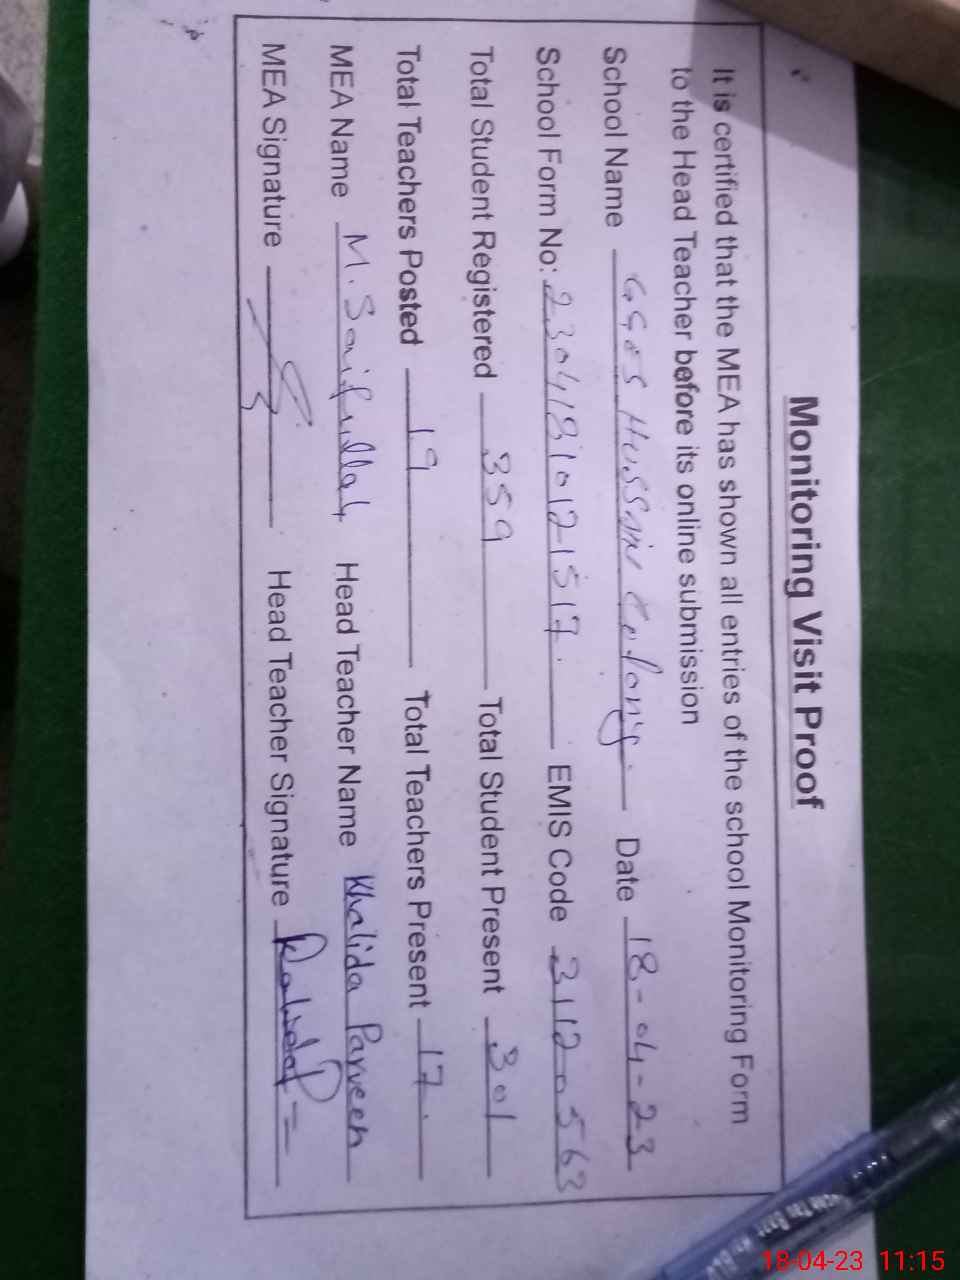 Monitoring Visit Proof
It is certified that the MEA has shown all entries of the school Monitoring Form
to the Head Teacher before its online submission
School Name GGES Hussain Colony. Date 18-04-23
School Form No: 23041810121517. EMIS Code 31120563
Total Student Registered 359 Total Student Present 301
Total Teachers Posted 19 Total Teachers Present 17.
MEA Name M. Saifullah Head Teacher Name Khalida Parveen
MEA Signature Head Teacher Signature
18-04-23 11:15